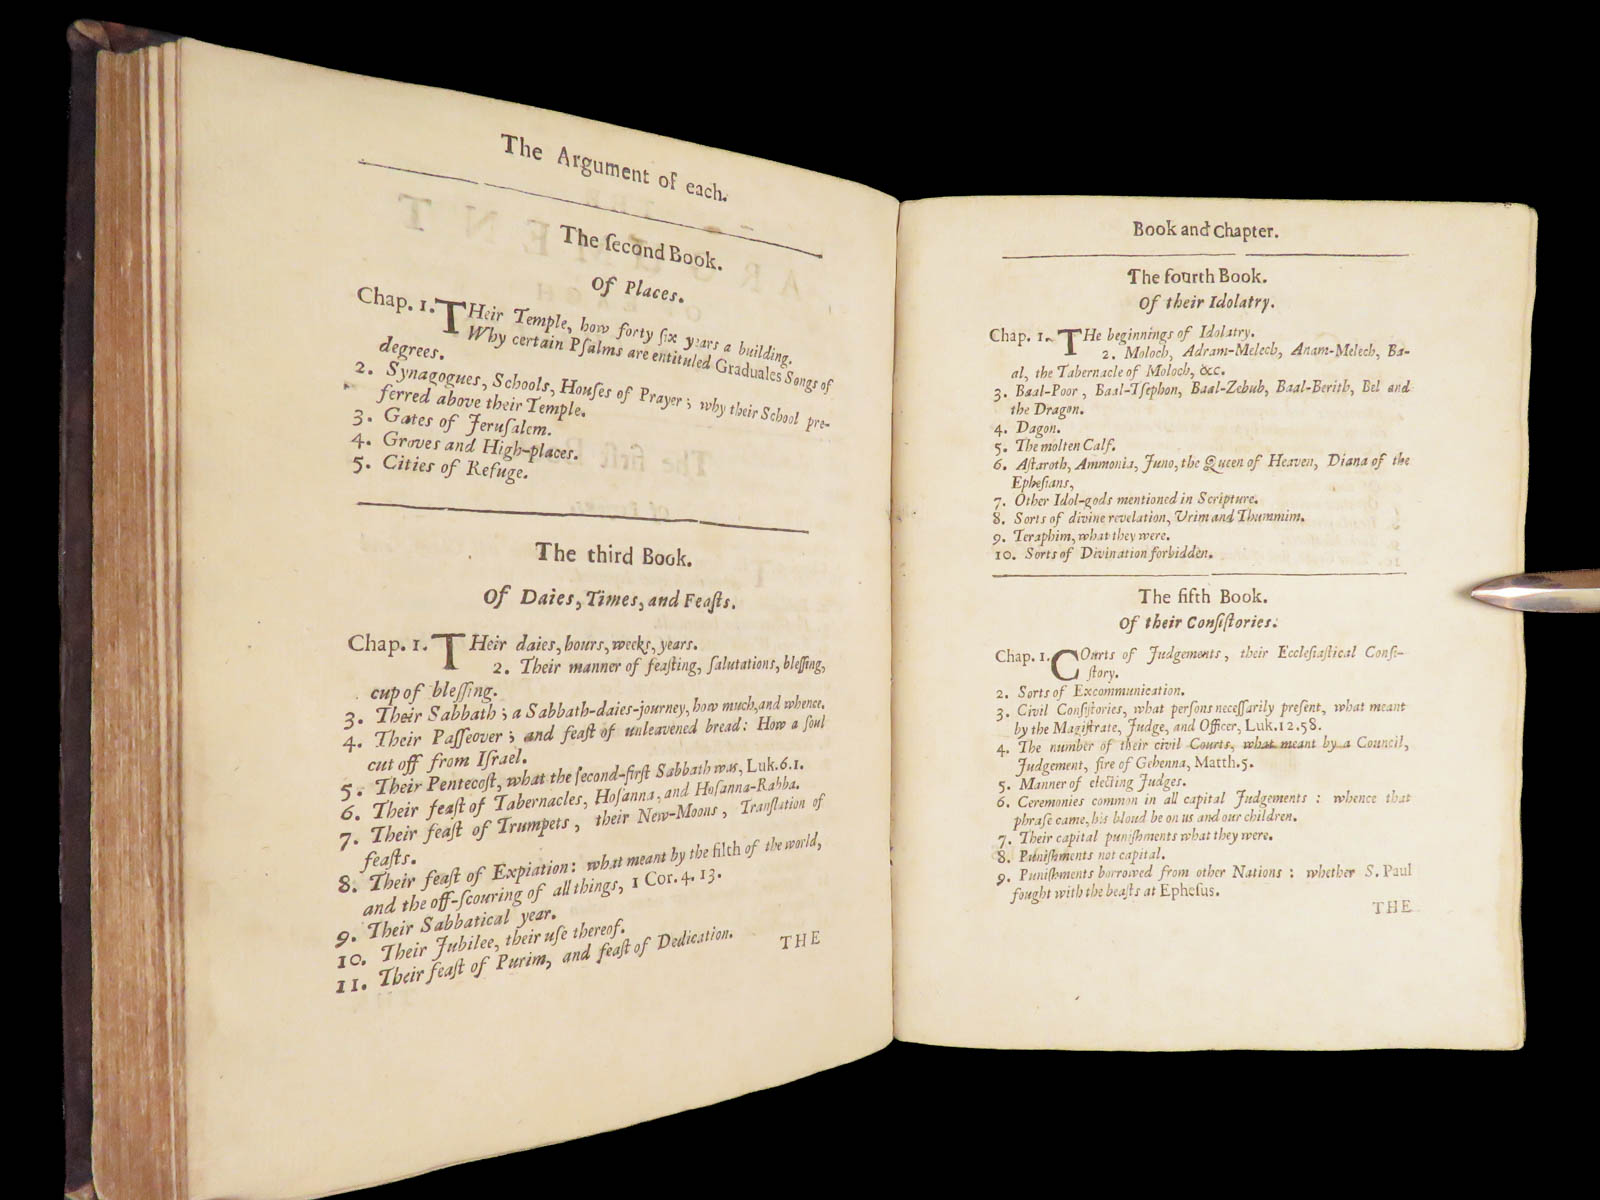 The Argument of each.
The ſecond Book.
Of Places.
Chap. 1. THeir Temple, how forty ſix years a building.
Why certain Pſalms are entituled Graduales Songs of
degrees.
2. Synagogues, Schools, Houſes of Prayer; why their School pre-
ferred above their Temple.
3. Gates of Jeruſalem.
4. Groves and High-places.
5. Cities of Refuge.
The third Book.
Of Daies, Times, and Feaſts.
Chap. 1. THeir daies, hours, weeks, years.
2. Their manner of feaſting, ſalutations, bleſſing,
cup of bleſſing.
3. Their Sabbath; a Sabbath-daies-journey, how much, and whence.
4. Their Paſſeover; and feaſt of unleavened bread: How a ſoul
cut off from Iſrael.
5. Their Pentecoſt, what the ſecond-firſt Sabbath was, Luk. 6. 1.
6. Their feaſt of Tabernacles, Hoſanna, and Hoſanna-Rabba.
7. Their feaſt of Trumpets, their New-Moons, Tranſlation of
feaſts.
8. Their feaſt of Expiation: what meant by the filth of the world,
and the off-ſcouring of all things, 1 Cor. 4. 13.
9. Their Sabbatical year.
10. Their Jubilee, their uſe thereof.
11. Their feaſt of Purim, and feaſt of Dedication.
THE
Book and Chapter.
The fourth Book.
Of their Idolatry.
Chap. 1. THe beginnings of Idolatry.
2. Moloch, Adram-Melech, Anam-Melech, Ba-
al, the Tabernacle of Moloch, &c.
3. Baal-Poor, Baal-Tſephon, Baal-Zebub, Baal-Berith, Bel and
the Dragon.
4. Dagon.
5. The molten Calf.
6. Aſtaroth, Ammonia, Juno, the Queen of Heaven, Diana of the
Epheſians,
7. Other Idol-gods mentioned in Scripture.
8. Sorts of divine revelation, Urim and Thummim.
9. Teraphim, what they were.
10. Sorts of Divination forbidden.
The fifth Book.
Of their Conſiſtories.
Chap. 1. COurts of Judgements, their Eccleſiaſtical Conſi-
ſtory.
2. Sorts of Excommunication.
3. Civil Conſiſtories, what perſons neceſſarily preſent, what meant
by the Magiſtrate, Judge, and Officer, Luk. 12. 58.
4. The number of their civil Courts, what meant by a Council,
Judgement, fire of Gehenna, Matth. 5.
5. Manner of electing Judges.
6. Ceremonies common in all capital Judgements: whence that
phraſe came, his bloud be on us and our children.
7. Their capital puniſhments what they were.
8. Puniſhments not capital.
9. Puniſhments borrowed from other Nations: whether S. Paul
fought with the beaſts at Epheſus.
THE